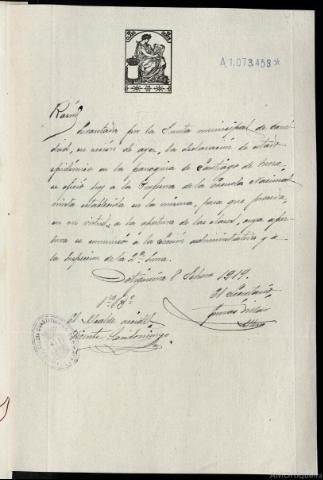 A1.073.458*
levantada por la Junta municipal de Sani-
dad, en sesión de ayer, la declaración de estado
epidémico en la parroquia de Santiago de
se ofició hoy a la de la Escuela Nacional
mixta establecida en la misma, para que proceda,
en su virtud, a la apertura de las clases, cuya aper-
tura se comunicó a la Sección administrativa y a
la Inspección de la 2ª Zona.
8 Febrero 1919.
Vº Bº El Secretario
El Alcalde accidtal
Vicente Santodomingo